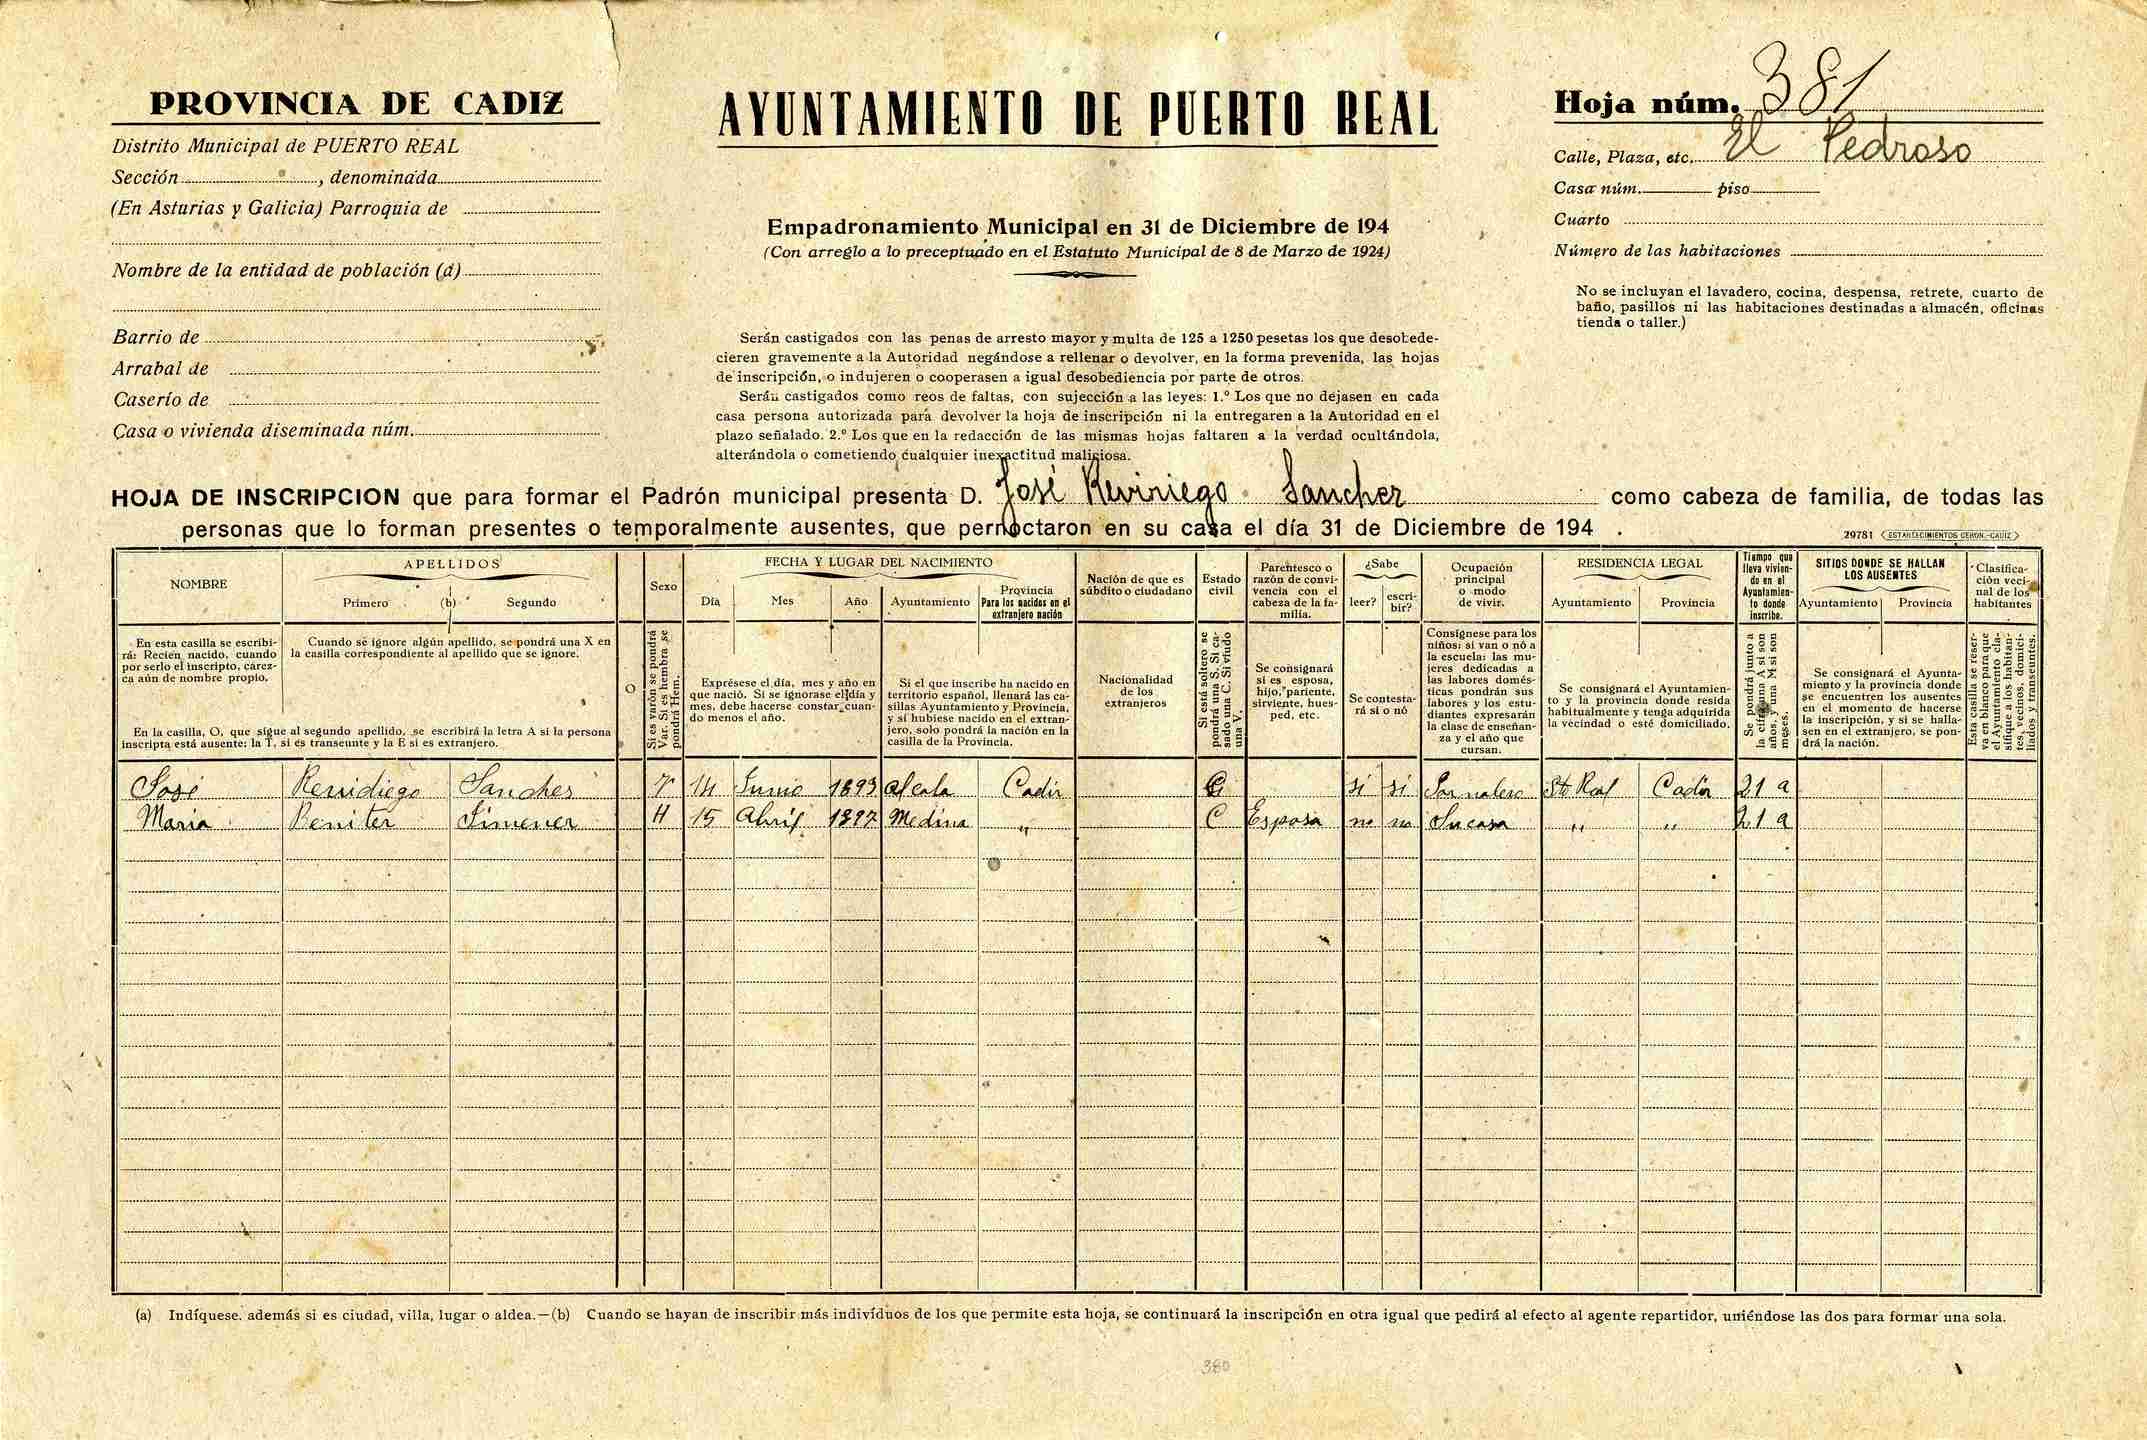 PROVINCIA DE CADIZ
Distrito Municipal de PUERTO REAL
Sección , denominada
(En Asturias y Galicia) Parroquia de
Nombre de la entidad de población (a)
Barrio de
Arrabal de
Caserío de
Casa o vivienda diseminada núm.
AYUNTAMIENTO DE PUERTO REAL
Empadronamiento Municipal en 31 de Diciembre de 194
(Con arreglo a lo preceptuado en el Estatuto Municipal de 8 de Marzo de 1924)
Serán castigados con las penas de arresto mayor y multa de 125 a 1250 pesetas los que desobede-
cieren gravemente a la Autoridad negándose a rellenar o devolver, en la forma prevenida, las hojas
de inscripción, o indujeren o cooperasen a igual desobediencia por parte de otros.
Serán castigados como reos de faltas, con sujección a las leyes: 1.º Los que no dejasen en cada
casa persona autorizada para devolver la hoja de inscripción ni la entregaren a la Autoridad en el
plazo señalado. 2.º Los que en la redacción de las mismas hojas faltaren a la verdad ocultándola,
alterándola o cometiendo cualquier inexactitud maliciosa.
Hoja núm. 381
Calle, Plaza, etc. El Pedroso
Casa núm. piso
Cuarto
Número de las habitaciones
No se incluyan el lavadero, cocina, despensa, retrete, cuarto de
baño, pasillos ni las habitaciones destinadas a almacén, oficinas
tienda o taller.)
HOJA DE INSCRIPCION que para formar el Padrón municipal presenta D. José Reviriego Sanchez como cabeza de familia, de todas las
personas que lo forman presentes o temporalmente ausentes, que pernoctaron en su casa el día 31 de Diciembre de 194 .
29781 ESTABLECIMIENTOS CERON.-CADIZ
NOMBRE
APELLIDOS
Primero (b) Segundo
O
Sexo
FECHA Y LUGAR DEL NACIMIENTO
Día Mes Año Ayuntamiento
Provincia
Para los nacidos en el
extranjero nación
Nación de que es
súbdito o ciudadano
Estado
civil
Parentesco o
razón de convi-
vencia con el
cabeza de la fa-
milia.
¿Sabe
leer? escri-
bir?
Ocupación
principal
o modo
de vivir.
RESIDENCIA LEGAL
Ayuntamiento Provincia
Tiempo que
lleva vivien-
do en el
Ayuntamien-
to donde
inscribe.
SITIOS DONDE SE HALLAN
LOS AUSENTES
Ayuntamiento Provincia
Clasifica-
ción veci-
nal de los
habitantes
En esta casilla se escribi-
rá: Recien nacido, cuando
por serlo el inscripto, carez-
ca aún de nombre propio.
Cuando se ignore algún apellido, se pondrá una X en
la casilla correspondiente al apellido que se ignore.
En la casilla, O, que sigue al segundo apellido, se escribirá la letra A si la persona
inscripta está ausente: la T, si es transeunte y la E si es extranjero.
Si es varón se pondrá
Var. Si es hembra se
pondrá Hem.
Exprésese el día, mes y año en
que nació. Si se ignorase el día y
mes, debe hacerse constar cuan-
do menos el año.
Si el que inscribe ha nacido en
territorio español, llenará las ca-
sillas Ayuntamiento y Provincia,
y si hubiese nacido en el extran-
jero, solo pondrá la nación en la
casilla de la Provincia.
Nacionalidad
de los
extranjeros
Si está soltero se
pondrá una S. Si ca-
sado una C. Si viudo
una V.
Se consignará
si es esposa,
hijo, pariente,
sirviente, hues-
ped, etc.
Se contesta-
rá si o nó
Consígnese para los
niños: si van o nó a
la escuela: las mu-
jeres dedicadas a
las labores domés-
ticas pondrán sus
labores y los estu-
diantes expresarán
la clase de enseñan-
za y el año que
cursan.
Se consignará el Ayuntamien-
to y la provincia donde resida
habitualmente y tenga adquirida
la vecindad o esté domiciliado.
Se pondrá junto a
la cifra una A si son
años, y una M si son
meses.
Se consignará el Ayunta-
miento y la provincia donde
se encuentren los ausentes
en el momento de hacerse
la inscripción, y si se halla-
sen en el extranjero, se pon-
drá la nación.
Esta casilla se reser-
va en blanco para que
el Ayuntamiento cla-
sifique a los habitan-
tes, vecinos, domici-
liados y transeuntes.
José Renidiego Sanches V 14 Junio 1893 Alcala Cadiz C si si Jornalero Pto Real Cadiz 21 a
Maria Beniter Simener H 15 Abril 1897 Medina " C Esposa no no Su casa " " 21 a
(a) Indíquese además si es ciudad, villa, lugar o aldea.—(b) Cuando se hayan de inscribir más indivíduos de los que permite esta hoja, se continuará la inscripción en otra igual que pedirá al efecto al agente repartidor, uniéndose las dos para formar una sola.
380